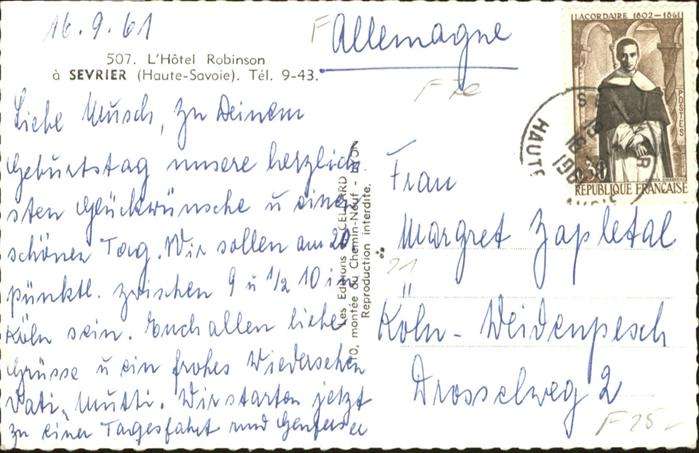 16.9.61
507. L'Hôtel Robinson
à SEVRIER (Haute-Savoie). Tél. 9-43.
Liebe Musch, zu Deinem
Geburtstag unsere herzlich
sten Glückwünsche u einen
schönen Tag. Wir sollen am 20
pünktl. zwischen 9 u 1/2 10 in
Köln sein. Euch allen liebe
Grüsse u ein frohes Wiedersehen
Vati, Mutti. Wir starten jetzt
zu einer Tagesfahrt rund Genfersee
Les Editions
10, montée du Chemin-Neuf -
Reproduction interdite.
F
Allemagne
F
LACORDAIRE 1802-1861
POSTES
0,30
REPUBLIQUE FRANÇAISE
HAUTE
Frau
Margret Zapletal
21
Köln - Weidenpesch
Drosselweg 2
F 25.-